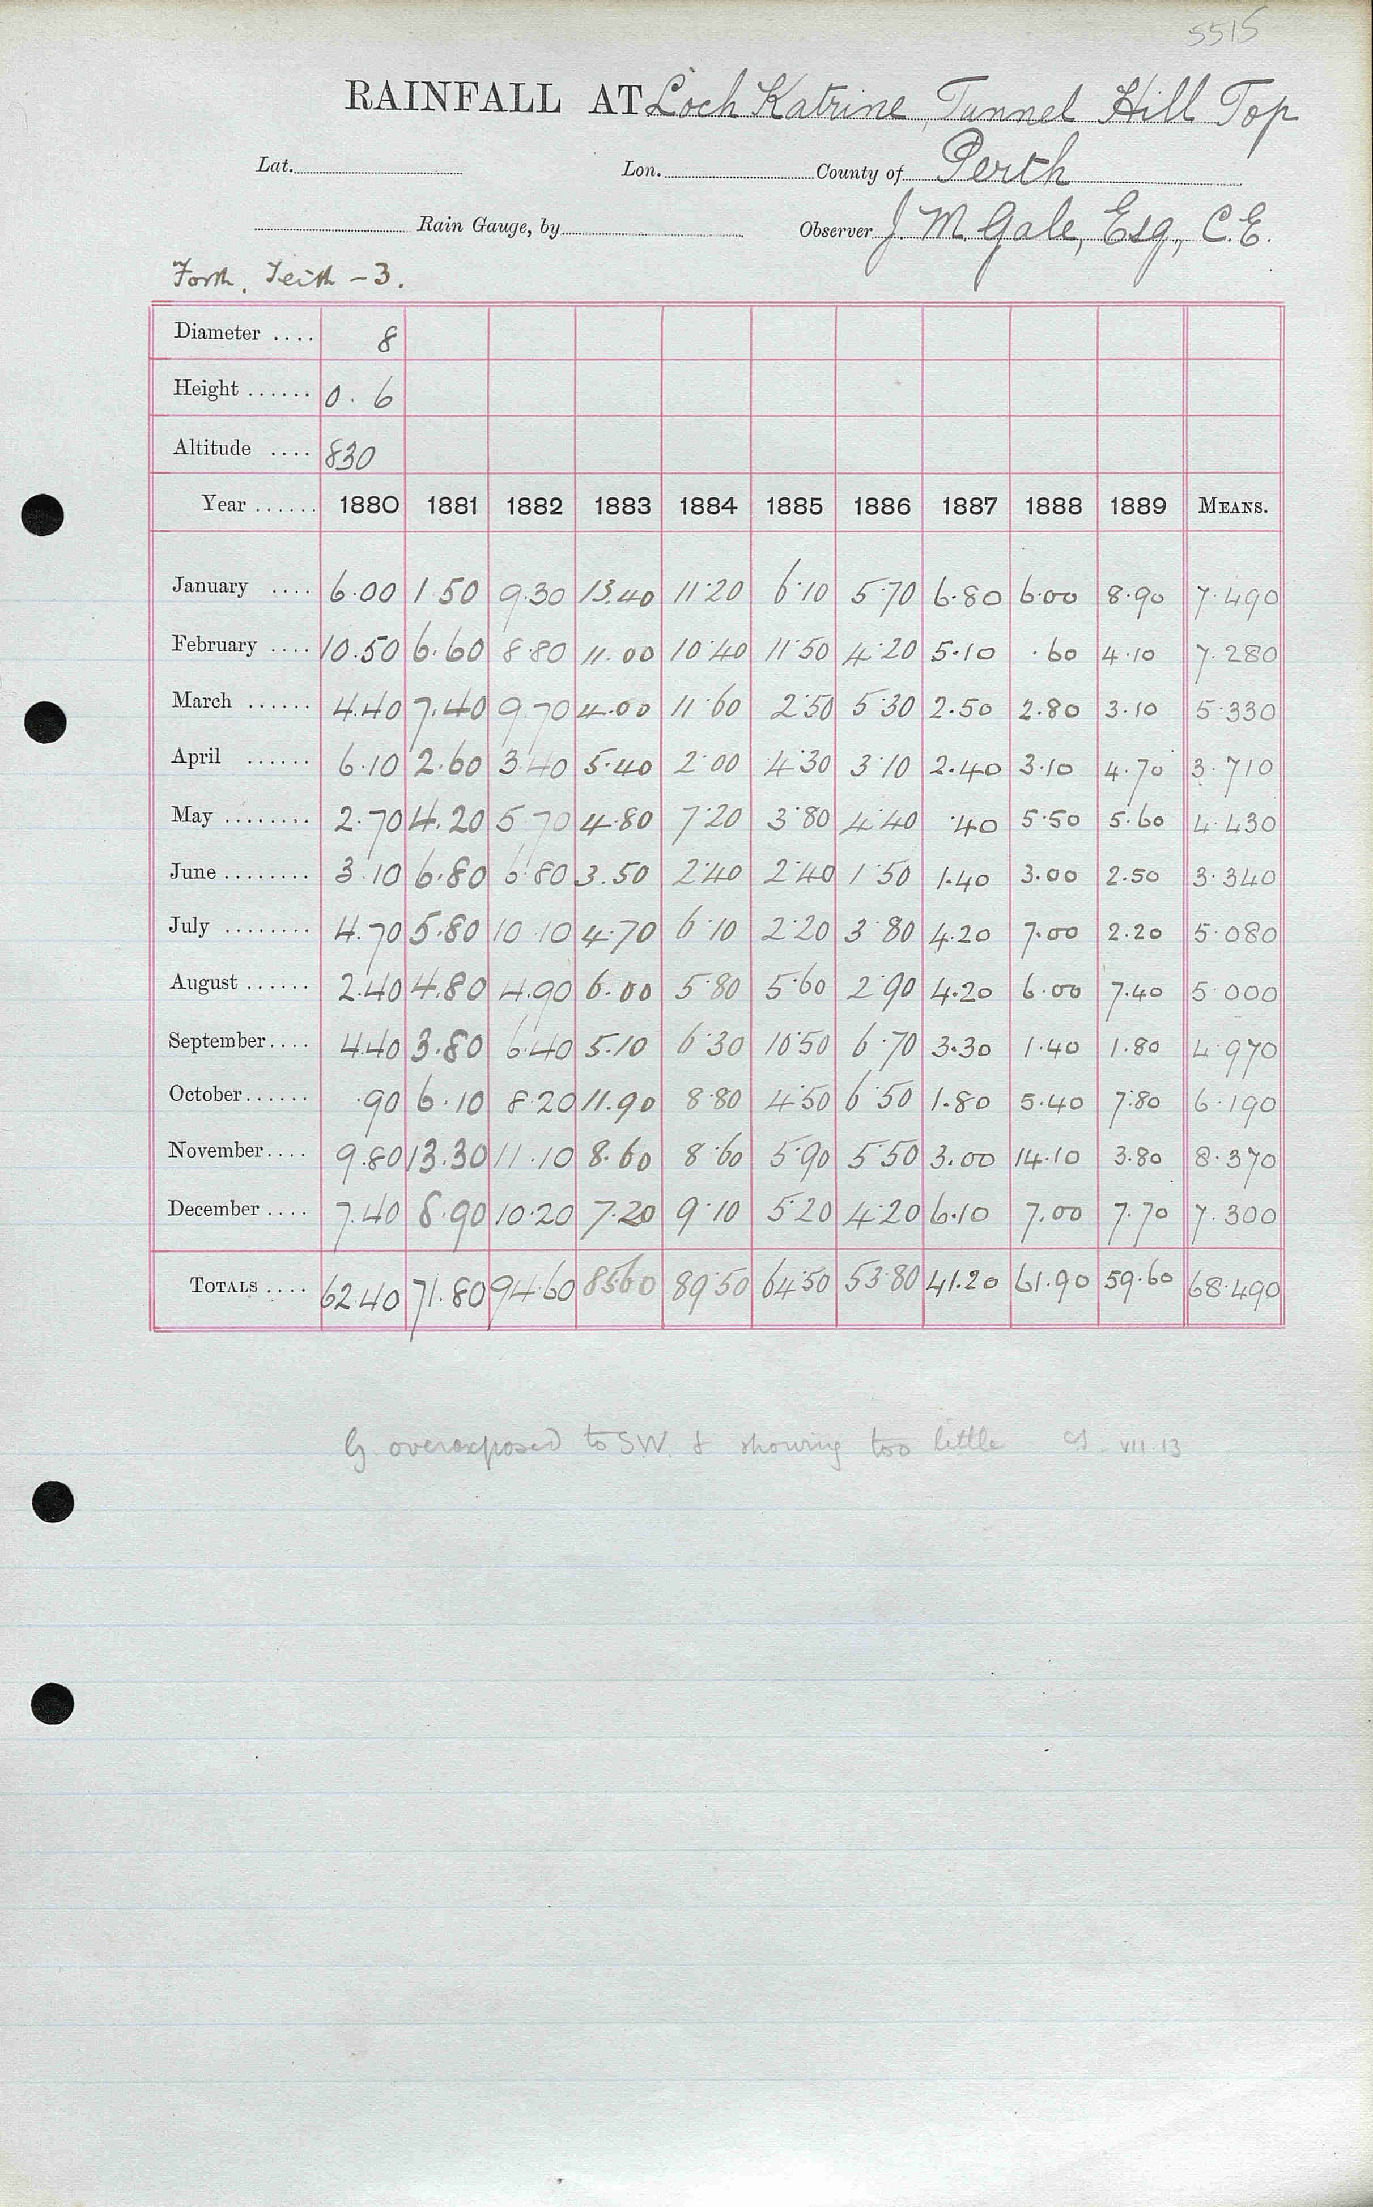 5515
RAINFALL AT Loch Katrine, Tunnel Hill Top
Lat. Lon. County of Perth
Rain Gauge, by Observer J. M. Gale, Esq., C.E.
Forth, Teith - 3.
Diameter .... 8
Height ...... 0.6
Altitude .... 830
Year ...... 1880 1881 1882 1883 1884 1885 1886 1887 1888 1889 MEANS.
January .... 6.00 1.50 9.30 13.40 11.20 6.10 5.70 6.80 6.00 8.90 7.490
February .... 10.50 6.60 8.80 11.00 10.40 11.50 4.20 5.10 .60 4.10 7.280
March ...... 4.40 7.40 9.70 4.00 11.60 2.50 5.30 2.50 2.80 3.10 5.330
April ...... 6.10 2.60 3.40 5.40 2.00 4.30 3.10 2.40 3.10 4.70 3.710
May ........ 2.70 4.20 5.70 4.80 7.20 3.80 4.40 .40 5.50 5.60 4.430
June ........ 3.10 6.80 6.80 3.50 2.40 2.40 1.50 1.40 3.00 2.50 3.340
July ........ 4.70 5.80 10.10 4.70 6.10 2.20 3.80 4.20 7.00 2.20 5.080
August ...... 2.40 4.80 4.90 6.00 5.80 5.60 2.90 4.20 6.00 7.40 5.000
September.... 4.40 3.80 6.40 5.10 6.30 10.50 6.70 3.30 1.40 1.80 4.970
October...... .90 6.10 8.20 11.90 8.80 4.50 6.50 1.80 5.40 7.80 6.190
November.... 9.80 13.30 11.10 8.60 8.60 5.90 5.50 3.00 14.10 3.80 8.370
December .... 7.40 8.90 10.20 7.20 9.10 5.20 4.20 6.10 7.00 7.70 7.300
TOTALS .... 62.40 71.80 94.60 85.60 89.50 64.50 53.80 41.20 61.90 59.60 68.490
G overexposed to SW. & showing too little VII.13